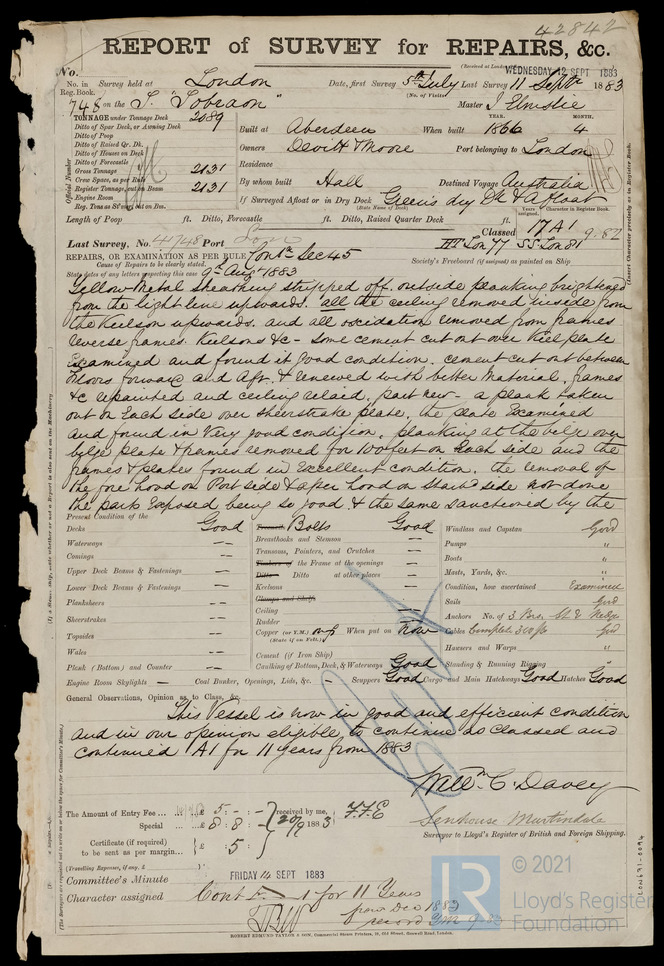 42842
REPORT of SURVEY for REPAIRS, &c.
(Received at London WEDNESDAY 12 SEPT 1883
No.
No. in Survey held at London Date, first Survey 5th July Last Survey 11 Septr 1883
Reg. Book. (No. of Visits)
748 on the S. "Sobraon" Master J. Elmslie
TONNAGE under Tonnage Deck 2089 YEAR. MONTH.
Ditto of Spar Deck, or Awning Deck Built at Aberdeen When built 1866 4
Ditto of Poop
Ditto of Raised Qr. Dk. Owners Devitt & Moore Port belonging to London
Ditto of Houses on Deck
Ditto of Forecastle Residence
Gross Tonnage 2131
Crew Space, as per Rule By whom built Hall Destined Voyage Australia
Register Tonnage, cut on Beam 2131
Engine Room If Surveyed Afloat or in Dry Dock Green's dry Dk & Afloat
Reg. Tons as St
Official Number
(State Name of Dock.) Character in Register Book.
Length of Poop ft. Ditto, Forecastle ft. Ditto, Raised Quarter Deck ft. Classed 17 A1 9.82
Last Survey, No. 4748 Port
REPAIRS, OR EXAMINATION AS PER RULE Contn Sec 45
Cause of Repairs to be clearly stated. Society's Freeboard (if assigned) as painted on Ship
State dates of any letters respecting this case 9th Augt 1883
Yellow Metal sheathing stripped off. outside planking bright
from the light line upwards. all the ceiling removed inside from
the Keelson upwards. and all oxidation removed from frames
reverse frames Keelsons &c - some cement cut out over Keel plate
Examined and found in good condition. cement cut out between
floors forward and Aft. & renewed with better material. frames
&c repainted and ceiling relaid, part new - a plank taken
out on Each side over sheerstrake plate, the plate Examined
and found in very good condition. planking at the bilge over
bilge plate & frames removed for 100 feet on Each side and the
frames & plates found in Excellent condition. the removal of
the fore hood on Port side & after hood on Starbd side not done
the parts Exposed being so good & the same sanctioned by the
Present Condition of the
Decks Good
Waterways "
Comings "
Upper Deck Beams & Fastenings "
Lower Deck Beams & Fastenings "
Planksheers "
Sheerstrakes "
Topsides "
Wales "
Plank (Bottom) and Counter "
Engine Room Skylights —
Bolts Good
Breasthooks and Stemson —
Transoms, Pointers, and Crutches —
Timbers of the Frame at the openings —
Ditto Ditto at other places —
Keelsons —
Clamps and Shelfs
Ceiling —
Rudder —
Copper (or Y.M.) When put on Now
(State if on Felt.)
Cement (if Iron Ship)
Caulking of Bottom, Deck, & Waterways Good
Coal Bunker, Openings, Lids, &c. — Scuppers Good Cargo and Main Hatchways Good Hatches Good
Windlass and Capstan Good
Pumps "
Boats "
Masts, Yards, &c. "
Condition, how ascertained Examined
Sails Good
Anchors No. of 3 Brs. St. & Kedge
Cables Complete 300 fs gd
Hawsers and Warps "
Standing & Running Rigging "
General Observations, Opinion as to Class, &c.
This Vessel is now in good and efficient condition
and in our opinion eligible to continue as Classed and
continued A1 for 11 Years from 1883
Wm C. Davey
The Amount of Entry Fee ... £ 5 : - : - received by me, F.F.E
Special ... £ 8 : 8 : - 20/9 1883
Senhouse Martindale
Surveyor to Lloyd's Register of British and Foreign Shipping.
Certificate (if required)
to be sent as per margin... £ : 5 :
(Travelling Expenses, if any, £ )
Committee's Minute FRIDAY 14 SEPT 1883
Character assigned Cont A 1 for 11 Years
from Dec 1883
record YM 9.83
ROBERT EDMUND TAYLOR & SON, Commercial Steam Printers, 19, Old Street, Goswell Road, London.
LR
© 2021
Lloyd's Register
Foundation